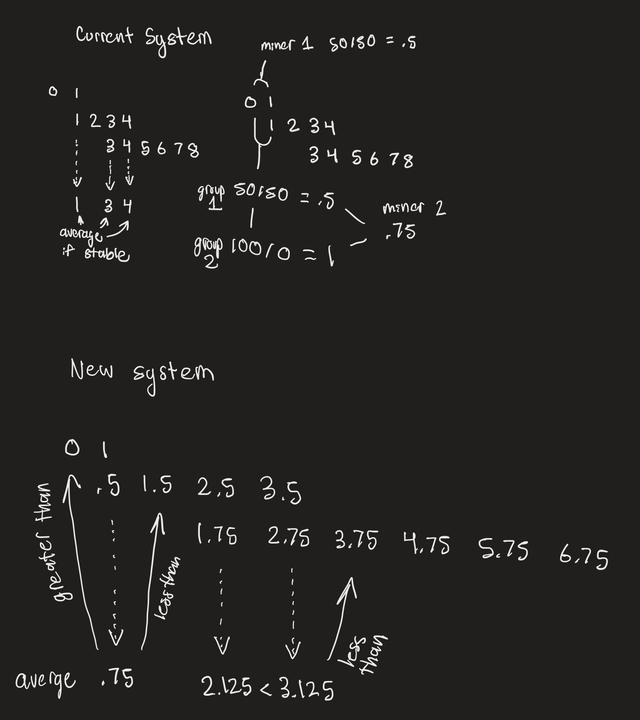 Current System
0 1
1 2 3 4
3 4 5 6 7 8
1 3 4
average
if stable
miner 1 50/50 = .5
0 1
1 2 3 4
3 4 5 6 7 8
group 1 50/50 = .5
group 2 100/0 = 1
miner 2
.75
New system
0 1
.5 1.5 2.5 3.5
1.75 2.75 3.75 4.75 5.75 6.75
greater than
less than
less than
averge .75
2.125 < 3.125